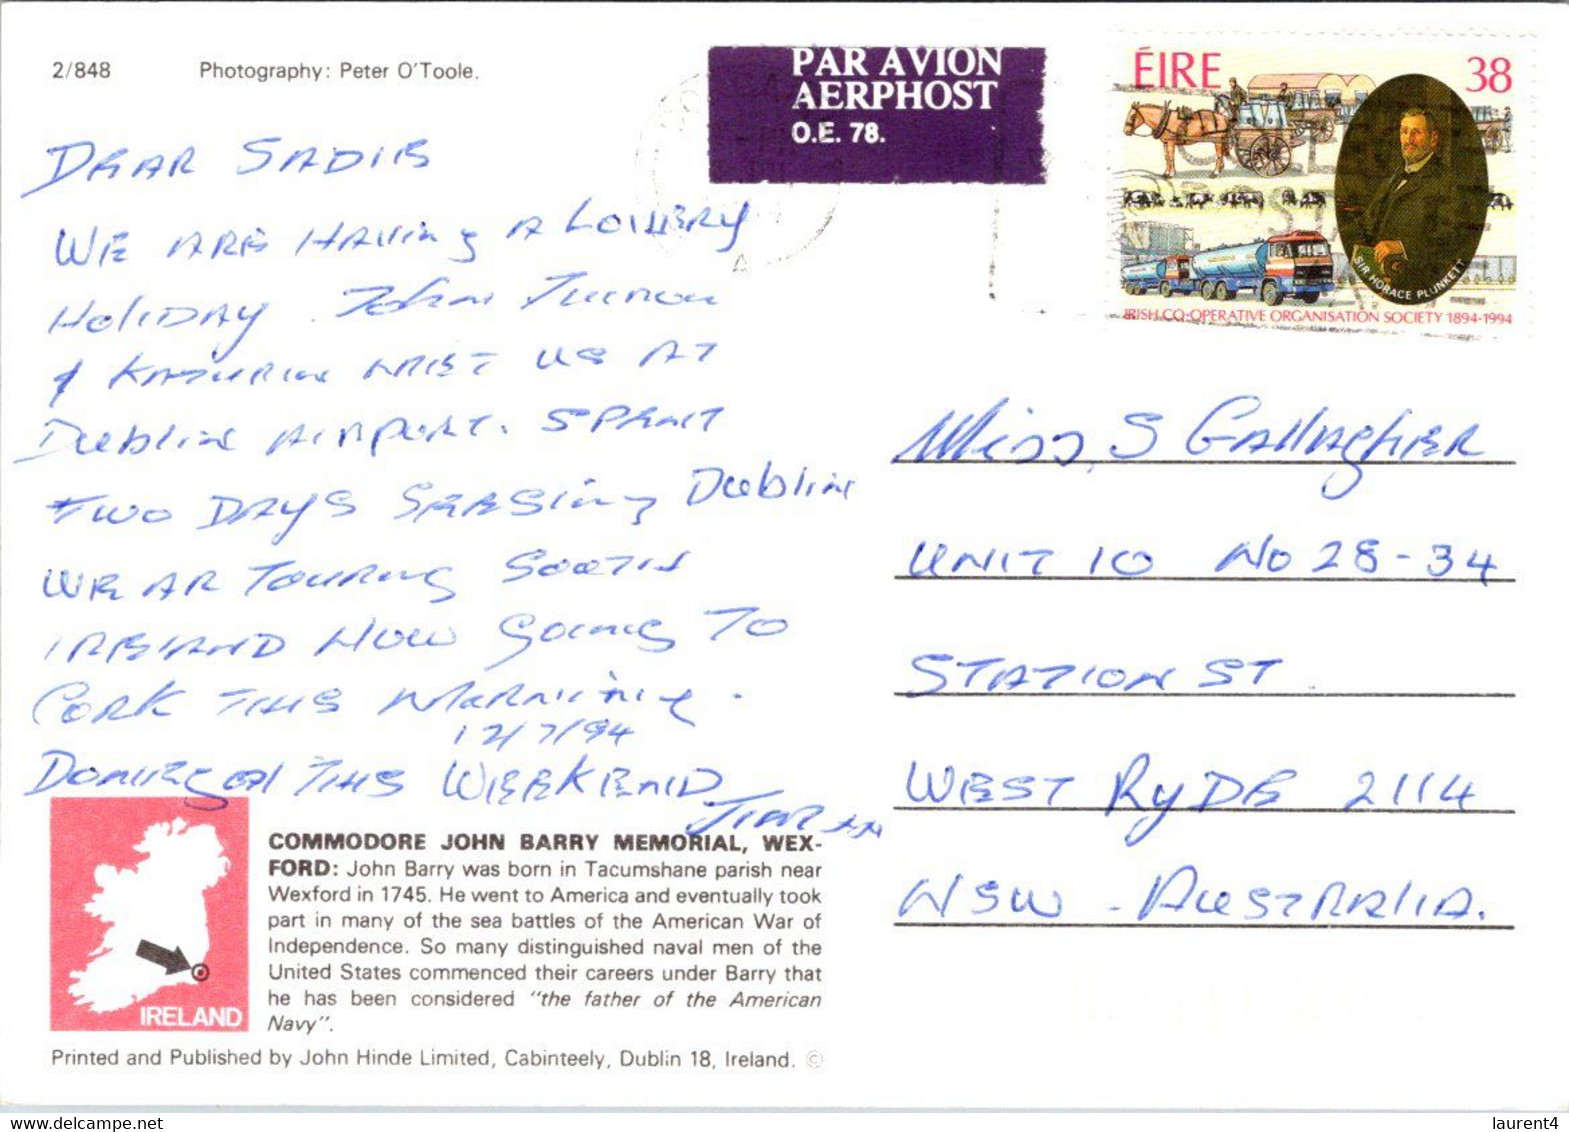 2/848 Photography: Peter O'Toole.
PAR AVION
AERPHOST
O.E. 78.
ÉIRE 38
SIR HORACE PLUNKETT
IRISH CO-OPERATIVE ORGANISATION SOCIETY 1894-1994
DEAR SADIE
WE ARE HAVING A LOVERY
HOLIDAY. John
& MET US AT
DUBLIN AIRPORT. SPENT
TWO DAYS SEESING DUBLIN
WE AR TOURING SOOTH
IRELAND NOW GOING TO
CORK THIS MORNING.
12/7/94
THIS WEEKEND
Miss, S GALLAGHER
UNIT 10 NO 28-34
STATION ST.
WEST RYDE 2114
NSW - AUSTRALIA.
COMMODORE JOHN BARRY MEMORIAL, WEX-
FORD: John Barry was born in Tacumshane parish near
Wexford in 1745. He went to America and eventually took
part in many of the sea battles of the American War of
Independence. So many distinguished naval men of the
United States commenced their careers under Barry that
he has been considered "the father of the American
Navy".
IRELAND
Printed and Published by John Hinde Limited, Cabinteely, Dublin 18, Ireland. ©
laurent4